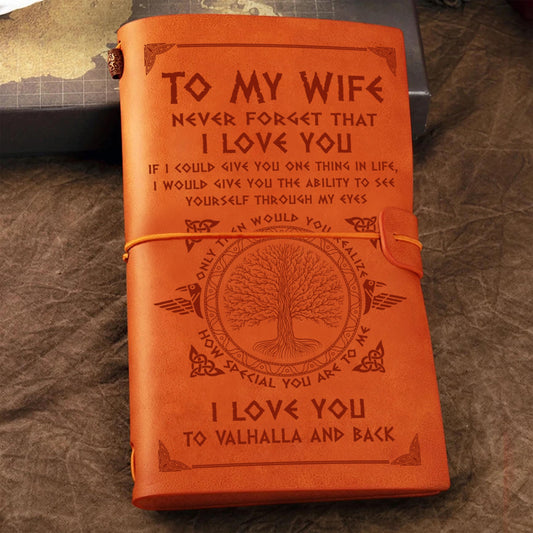 TO MY WIFE
NEVER FORGET THAT
I LOVE YOU
IF I COULD GIVE YOU ONE THING IN LIFE,
I WOULD GIVE YOU THE ABILITY TO SEE
YOURSELF THROUGH MY EYES
ONLY THEN WOULD YOU REALIZE
HOW SPECIAL YOU ARE TO ME
I LOVE YOU
TO VALHALLA AND BACK